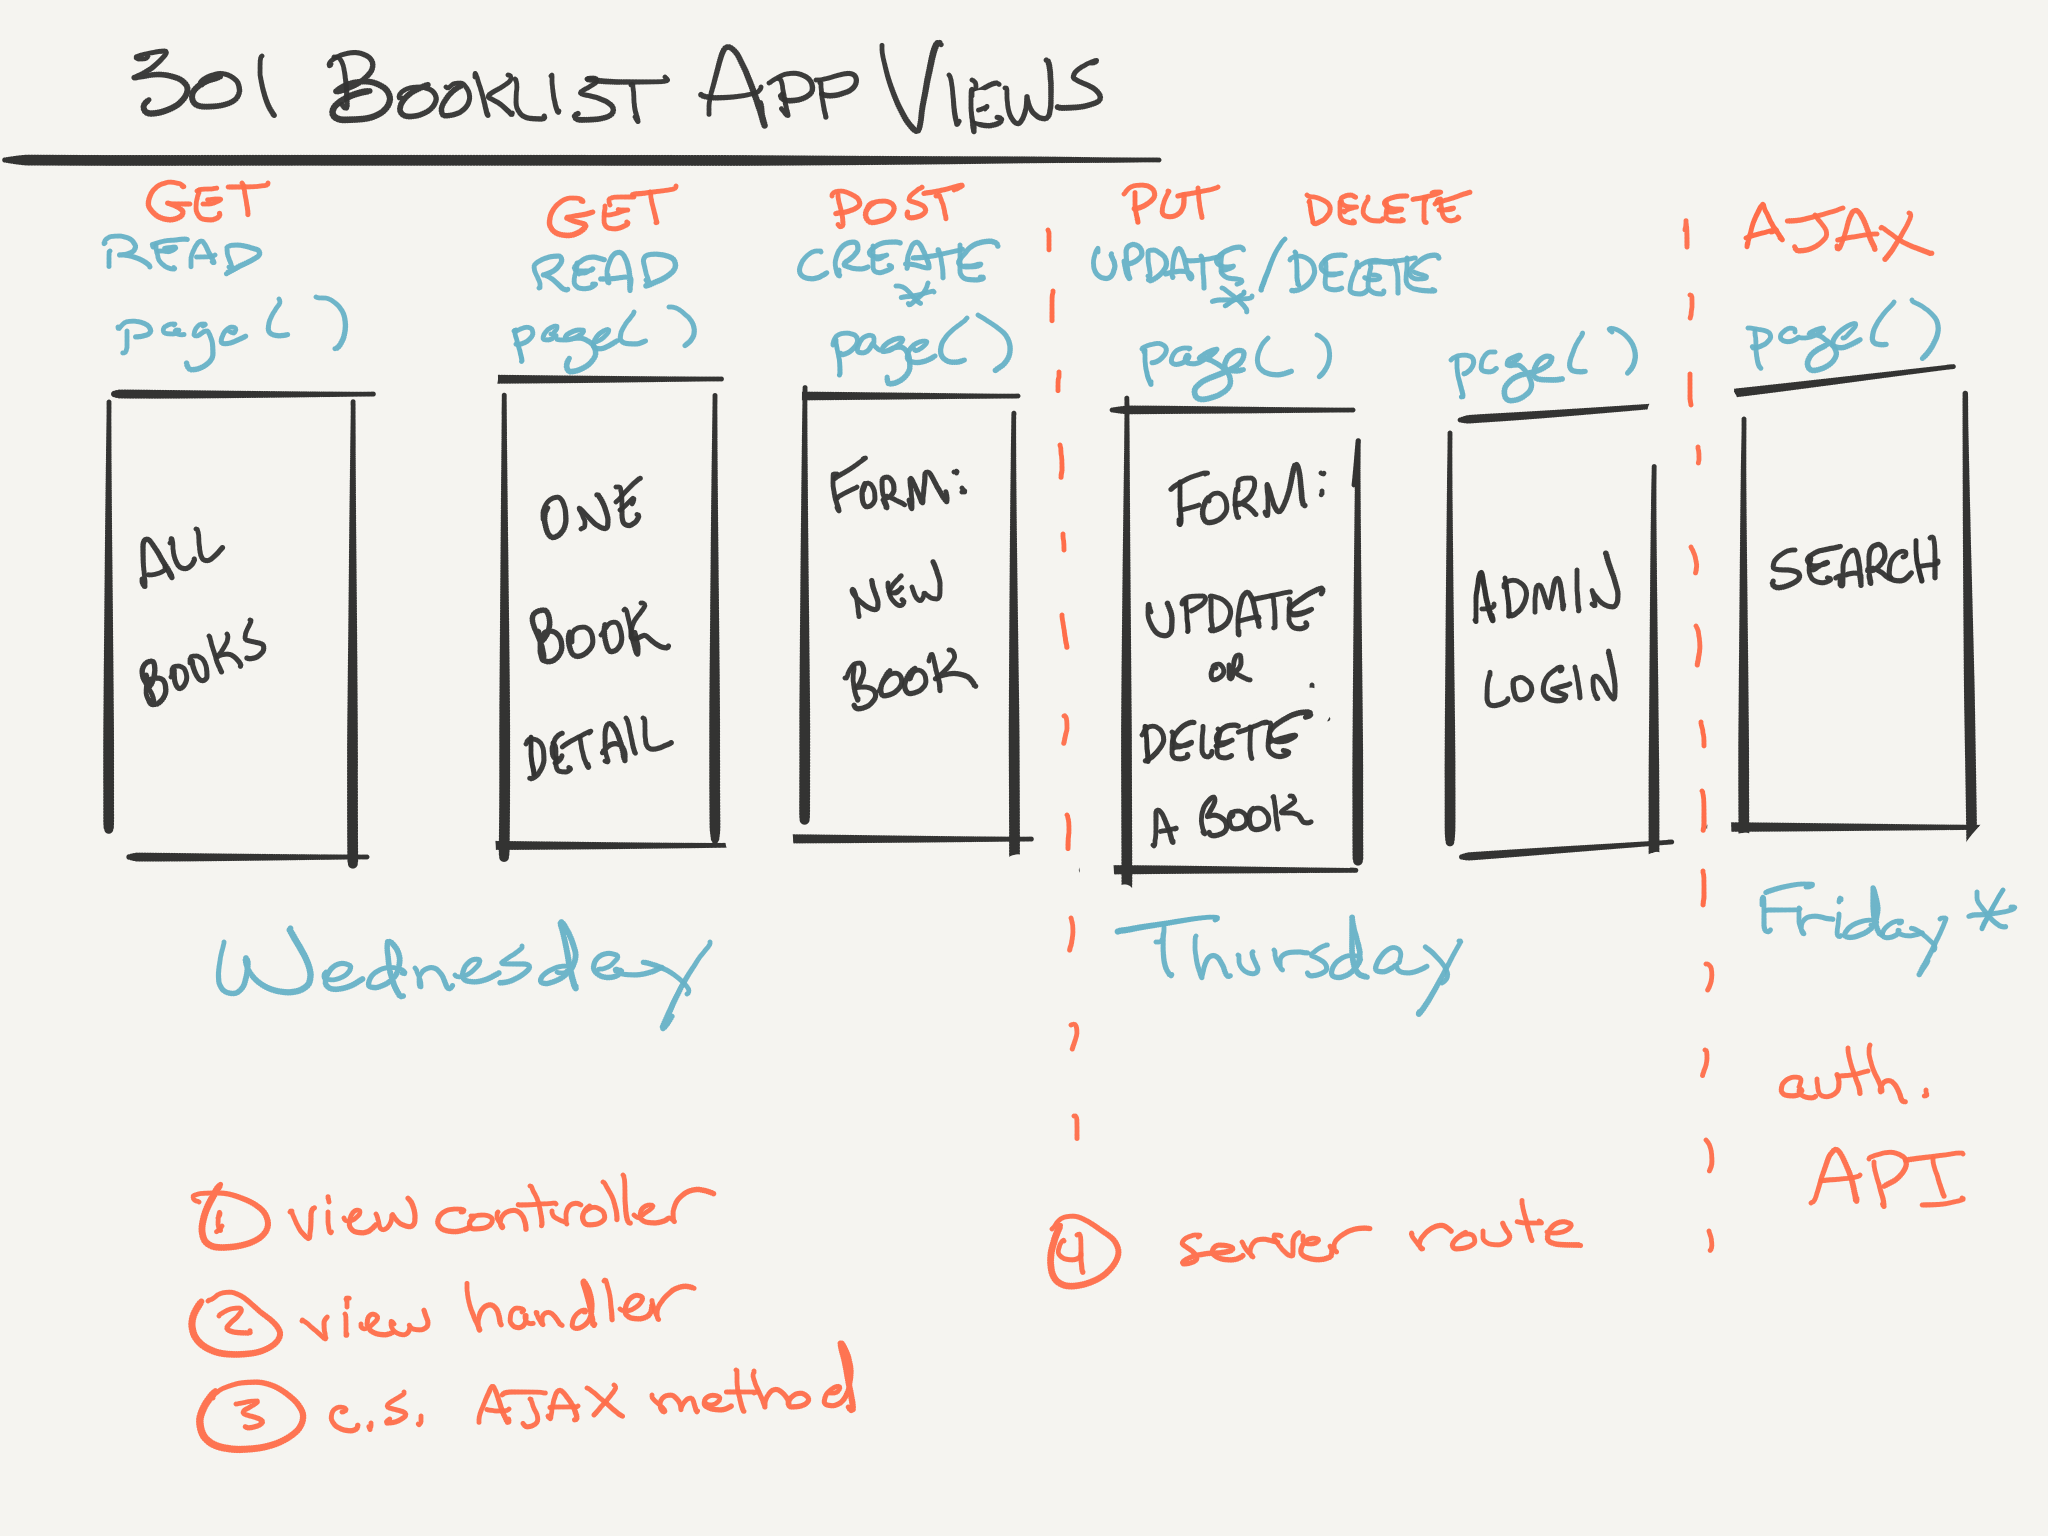 301 BOOKLIST APP VIEWS
GET
READ
page()
ALL
BOOKS
GET
READ
page()
ONE
BOOK
DETAIL
POST
CREATE
*
page()
FORM:
NEW
BOOK
Wednesday
PUT DELETE
UPDATE/DELETE
*
page()
FORM:
UPDATE
OR
DELETE
A BOOK
page()
ADMIN
LOGIN
Thursday
AJAX
page()
SEARCH
Friday *
auth.
API
1 view controller
2 view handler
3 c.s. AJAX method
4 server route